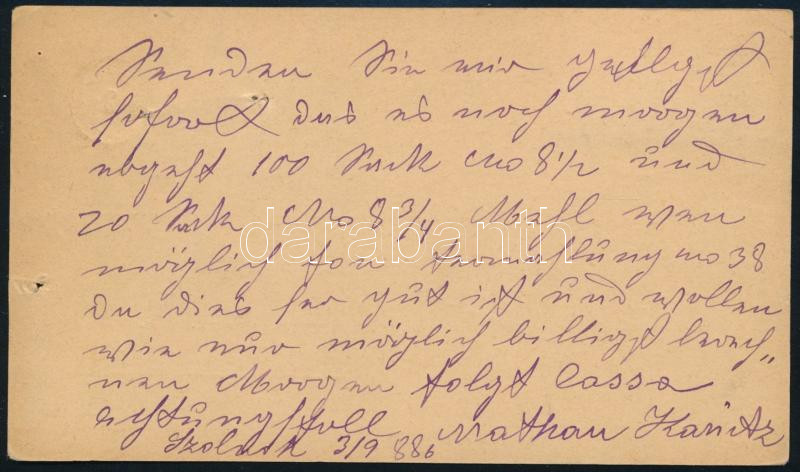 Senden Sie mir gefelgst
sofort das es noch morgen
abgeht 100 Sack No 8 1/2 und
20 Sack No 8 3/4 Mehl wen
möglich fon Vermahlung no 38
Da dies ser gut ist und wollen
wie nur möglich billigst berech„
nen Morgen folgt Cassa
achtungsfoll Nathan Kanitz
Szolnok 3/9 886
darabanth